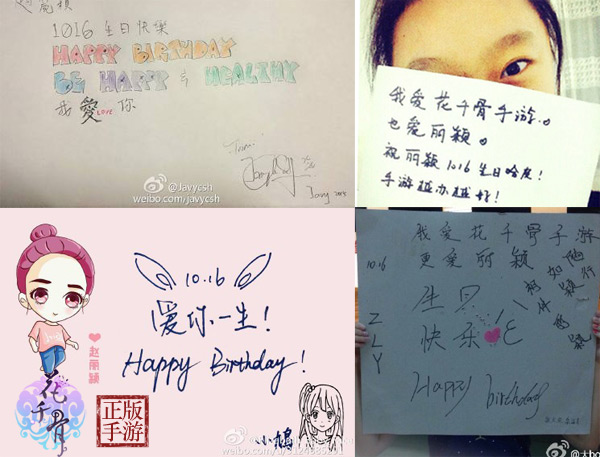 赵丽颖
1016 生日快樂
HAPPY BIRTHDAY
BE HAPPY & HEALTHY
我愛你
LOVE
@Javycsh
weibo.com/javycsh
我爱花千骨手游。
也爱丽颖。
祝丽颖1016生日哈皮!
手游越办越好!
10.16
爱你一生!
Happy Birthday!
赵丽颖
花千骨
正版
手游
小鸠
我爱花千骨手游
更爱丽颖
10.16
ZLY
生日
快乐
Happy birthday